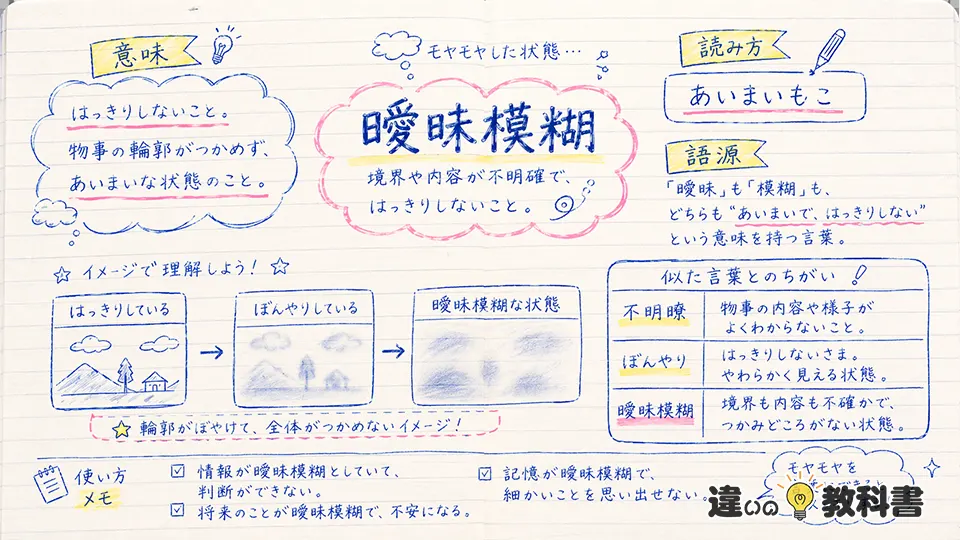 意味
はっきりしないこと。
物事の輪郭がつかめず、
あいまいな状態のこと。
モヤモヤした状態…
曖昧模糊
境界や内容が不明確で、
はっきりしないこと。
読み方
あいまいもこ
語源
「曖昧」も「模糊」も、
どちらも“あいまいで、はっきりしない”
という意味を持つ言葉。
☆ イメージで理解しよう! ☆
はっきりしている
→
ぼんやりしている
→
曖昧模糊な状態
☆ 輪郭がぼやけて、全体がつかめないイメージ!
似た言葉とのちがい
不明瞭
物事の内容や様子が
よくわからないこと。
ぼんやり
はっきりしないさま。
やわらかく見える状態。
曖昧模糊
境界も内容も不確かで、
つかみどころがない状態。
使い方
メモ
☑ 情報が曖昧模糊としていて、
判断ができない。
☑ 将来のことが曖昧模糊で、不安になる。
☑ 記憶が曖昧模糊で、
細かいことを思い出せない。
モヤモヤを
違いの教科書